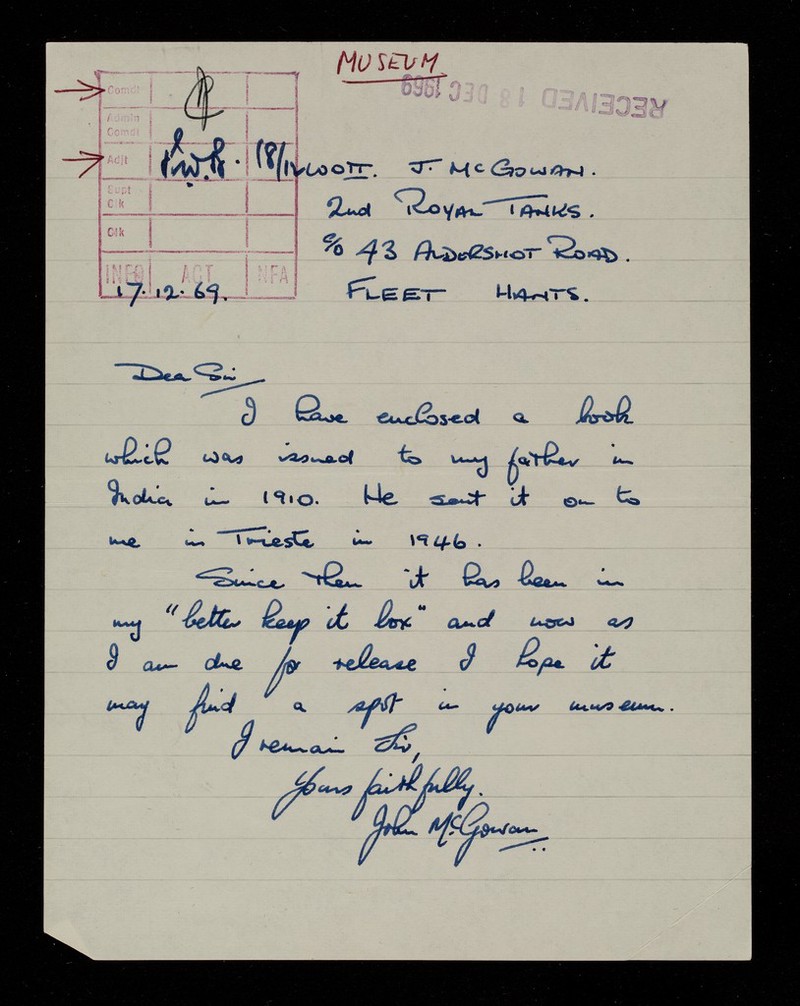 MUSEUM
RECEIVED 18 DEC 1969
Comdt
Admin
Comdt
Adjt
18/12
Supt
Clk
Clk
INFO ACT NFA
WOII. J. McGOWAN.
2nd ROYAL TANKS.
c/o 43 ALDERSHOT ROAD.
FLEET HANTS.
17.12.69.
Dear Sir
I have enclosed a book
which was issued to my father in
India in 1910. He sent it on to
me in Trieste in 1946.
Since then it has been in
my "better keep it box" and now as
I am due for release I hope it
may find a spot in your museum.
I remain Sir,
Yours faithfully.
John McGowan